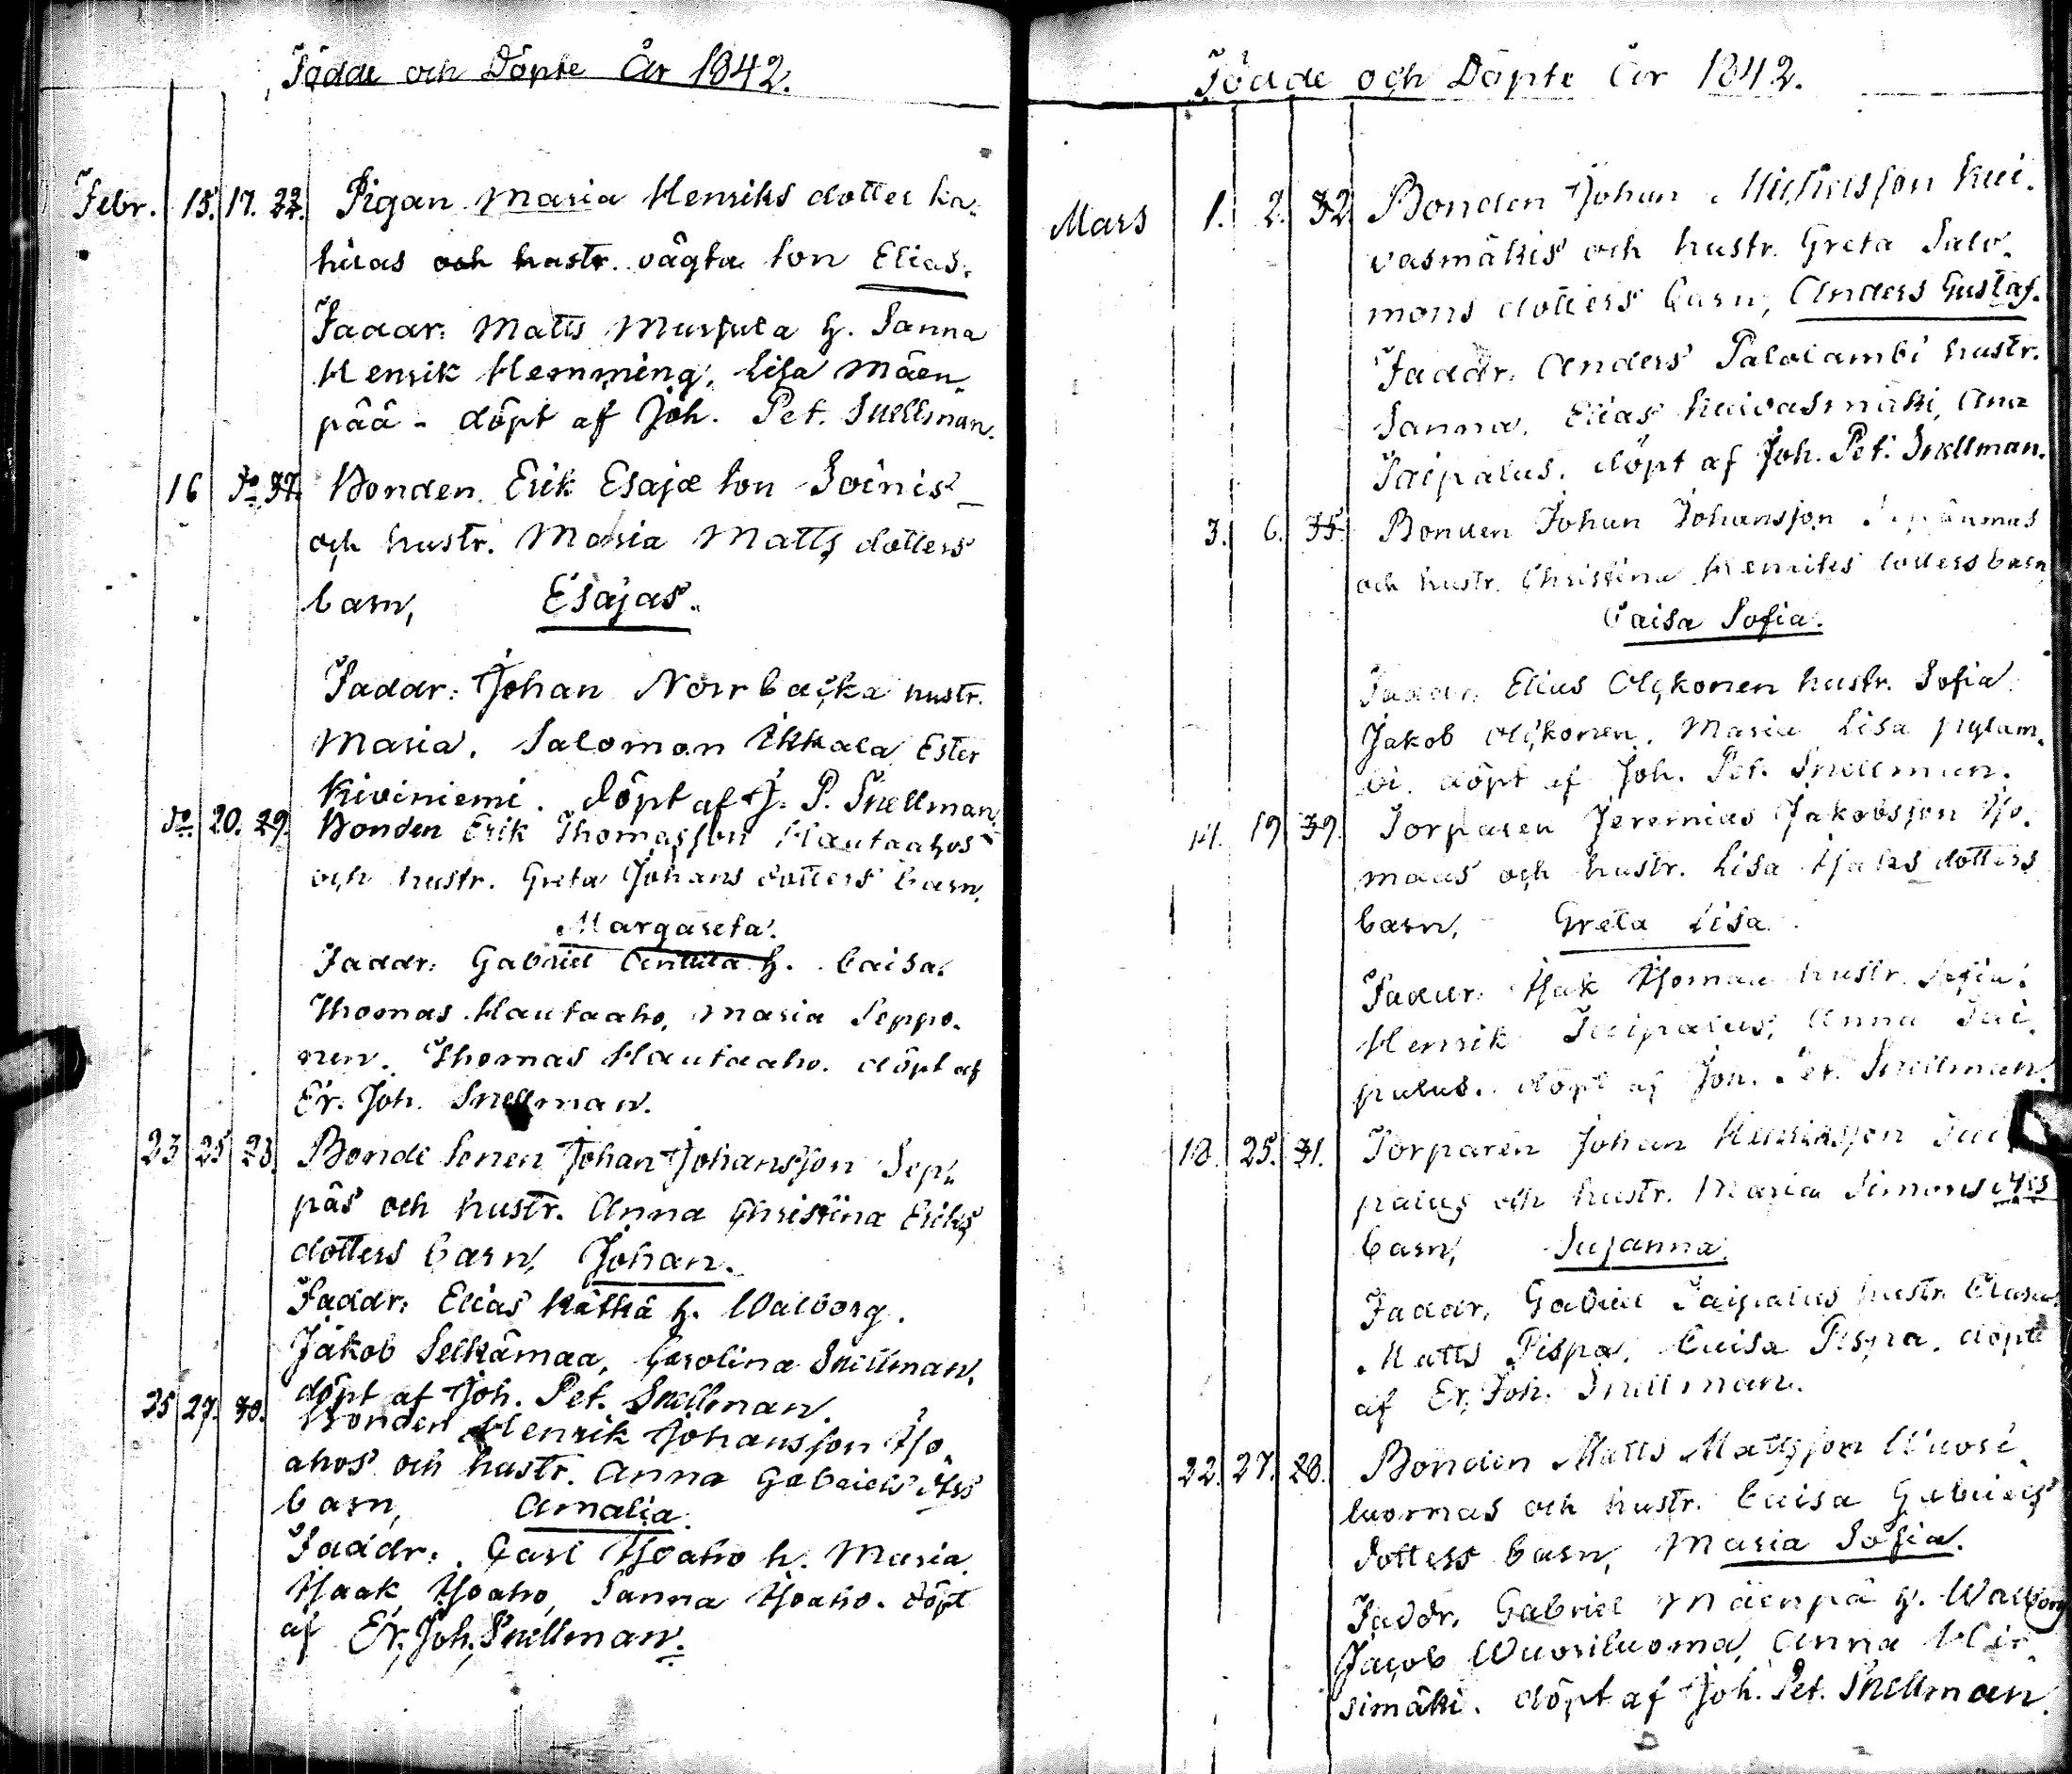 Födde och Döpte År 1842.
Febr. 15. 17. 22. Pigan Maria Henriks dotter Ka-
hilas och hustr. oägta son Elias.
Faddr: Matts h. Sanna
Henrik Hemming, Lisa Mäen-
pää - döpt af Joh. Pet. Snellman.
16 do 37. Bonden Erik Esajæ son Soinis
och hustr. Maria Matts dotters
barn, Esajas.
Faddr: Johan Norrbacka hustr.
Maria. Salomon Ikkala Ester
Kiviniemi. döpt af J. P. Snellman.
do. 20. 29. Bonden Erik Thomasson Hautaahos
och hustr. Greta Johans dotters barn,
Margareta.
Faddr: Gabriel Anttila h. Caisa.
Thomas Hautaaho, Maria Seppo-
nen. Thomas Hautaaho. döpt af
Er. Joh. Snellman.
23 25 23. Bonde Sonen Johan Johansson Sep-
päs och hustr. Anna Christina Eriks
dotters barn, Johan.
Faddr: Elias Kätkä h. Walborg.
Jakob Selkämaa, Carolina Snellman.
döpt af Joh. Pet. Snellman.
25 27. 30. Bonden Henrik Johansson Iso-
ahos och hustr. Anna Gabriels drs
barn, Amalia.
Faddr: Carl Isoaho h. Maria
Isaak Isoaho, Sanna Isoaho. döpt
af Er. Joh. Snellman.
Födde och Döpte År 1842.
Mars 1. 2. 32. Bonden Johan Michelsson Kui-
vasmäkis och hustr. Greta Salo-
mons dotters barn, Anders Gustaf.
Faddr: Anders Palolambi hustr.
Sanna. Elias Kuivasmäki, Ana
Taipalus. döpt af Joh. Pet. Snellman.
3. 6. 35. Bonden Johan Johansson
och hustr. Christina Henriks dotters barn,
Caisa Sofia.
Faddr: Elias Olckonen hustr. Sofia.
Jakob Olckonen, Maria Lisa Pylam-
bi. döpt af Joh. Pet. Snellman.
14. 19 39. Torparen Jeremias Jakobsson Iso-
maas och hustr. Lisa Isaks dotters
barn, Greta Lisa.
Faddr: Isak Isomaa hustr. Sofia.
Henrik Taipalus, Anna Tai-
palus. döpt af Joh. Pet. Snellman.
18. 25. 31. Torparen Johan Henriksson Tai-
palus och hustr. Maria Simons drs
barn, Susanna.
Faddr: Gabriel Taipalus hustr. Clara.
Matts Pispa. Caisa Pispa. döpt
af Er. Joh. Snellman.
22. 27. 28. Bonden Matts Mattsson Wuosi-
luomas och hustr. Caisa Gabriels
dotters barn, Maria Sofia.
Faddr: Gabriel Mäenpä h. Walborg
Jacob Wuosiluoma, Anna Hir-
simäki. döpt af Joh. Pet. Snellman.